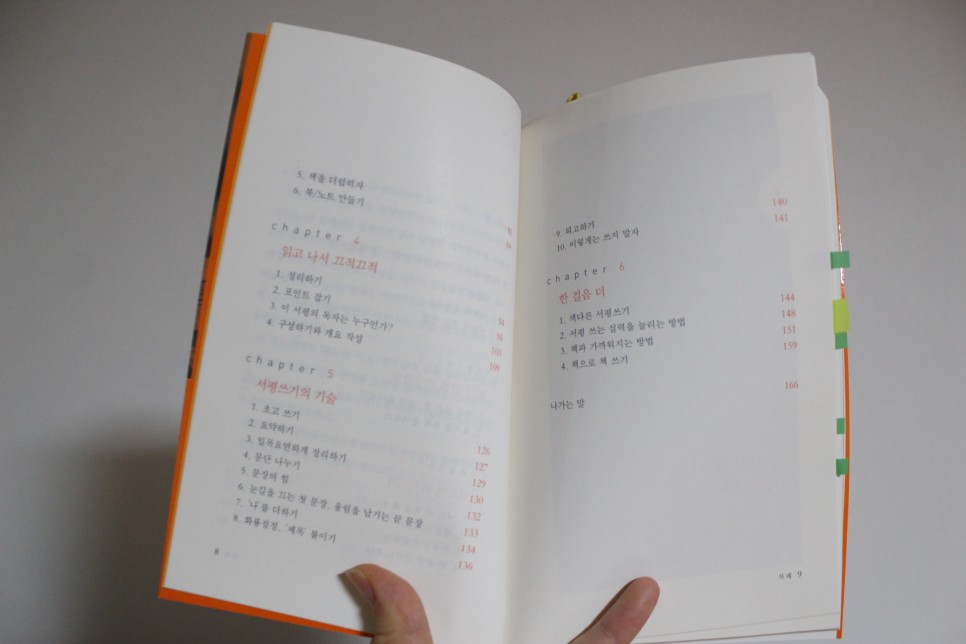 5. 책을 더럽히자
6. 북/노트 만들기
chapter 4
읽고 나서 끄적끄적
1. 정리하기 94
2. 포인트 잡기 96
3. 이 서평의 독자는 누구인가? 103
4. 구성하기와 개요 작성 109
chapter 5
서평쓰기의 기술
1. 초고 쓰기 126
2. 요약하기 127
3. 일목요연하게 정리하기 129
4. 문단 나누기 130
5. 문장의 힘 132
6. 눈길을 끄는 첫 문장, 울림을 남기는 끝 문장 133
7. '나'를 더하기 134
8. 화룡점정, '제목' 붙이기 136
8
9. 퇴고하기 140
10. 이렇게는 쓰지 말자 141
chapter 6
한 걸음 더
1. 색다른 서평쓰기 144
2. 서평 쓰는 실력을 늘리는 방법 148
3. 책과 가까워지는 방법 151
4. 책으로 책 쓰기 159
나가는 말 166
차례 9